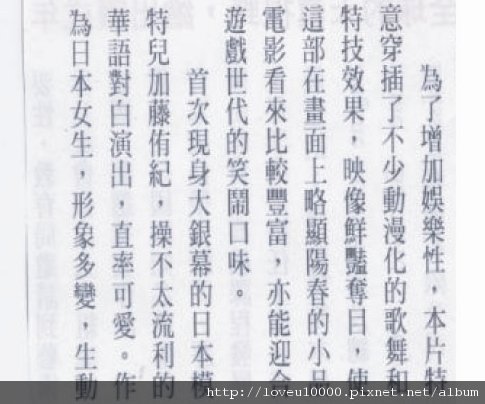 為了增加娛樂性，本片特
意穿插了不少動漫化的歌舞和
特技效果，映像鮮豔奪目，使
這部在畫面上略顯陽春的小品
電影看來比較豐富，亦能迎合
遊戲世代的笑鬧口味。
首次現身大銀幕的日本模
特兒加藤侑紀，操不太流利的
華語對白演出，直率可愛。作
為日本女生，形象多變，生動
http://loveu10000.pixnet.net/album